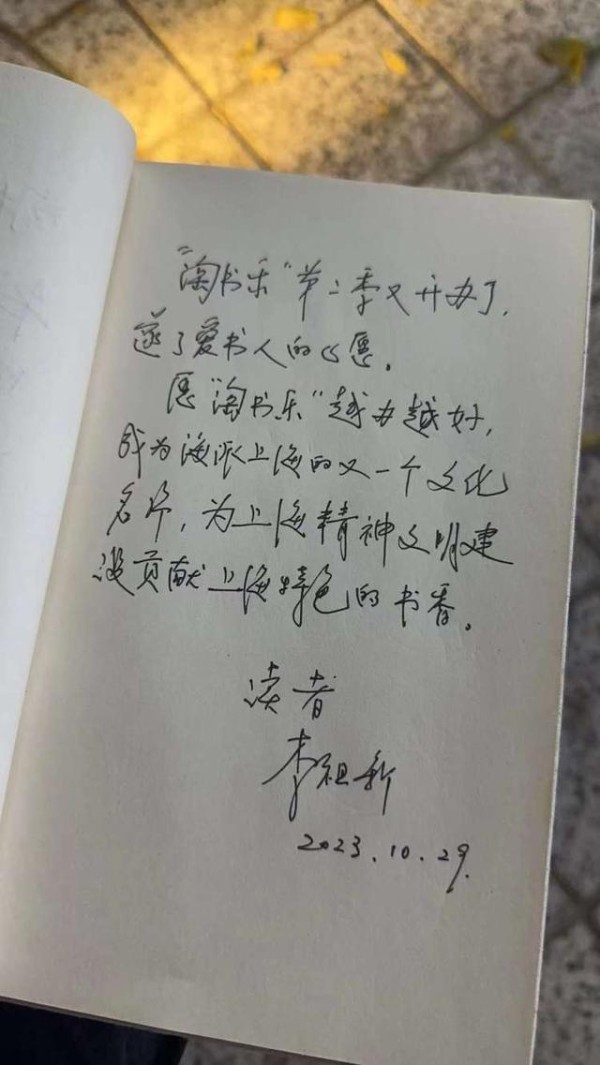 "淘书乐"第二季又开办了，
遂了爱书人的心愿。
愿"淘书乐"越办越好，
成为海派上海的又一个文化
名片，为上海精神文明建
设贡献上海特色的书香。
读者
李祖新
2023.10.29.